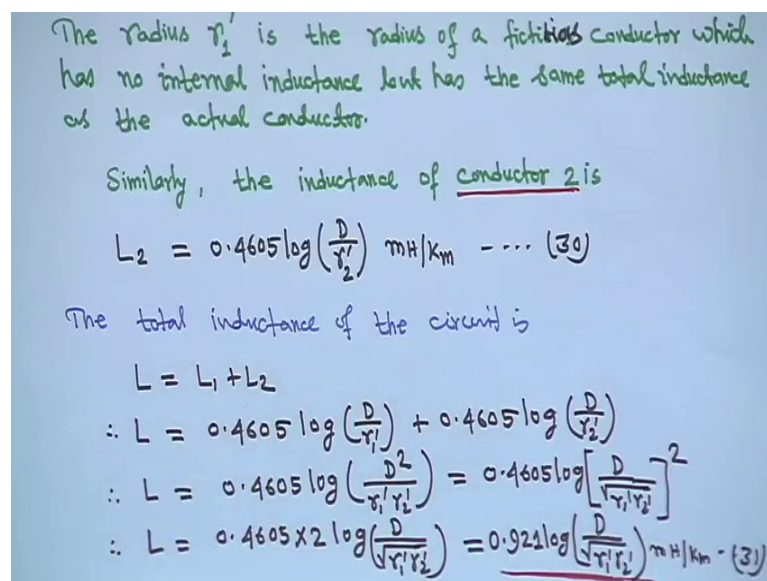 The radius r₁' is the radius of a fictitious conductor which
has no internal inductance but has the same total inductance
as the actual conductor.
Similarly, the inductance of conductor 2 is
L₂ = 0.4605 log(D/r₂') mH/Km - ... (30)
The total inductance of the circuit is
L = L₁ + L₂
∴ L = 0.4605 log(D/r₁') + 0.4605 log(D/r₂')
∴ L = 0.4605 log(D²/r₁'r₂') = 0.4605 log[D/√r₁'r₂']²
∴ L = 0.4605 x 2 log(D/√r₁'r₂') = 0.921 log(D/√r₁'r₂') mH/Km - (31)